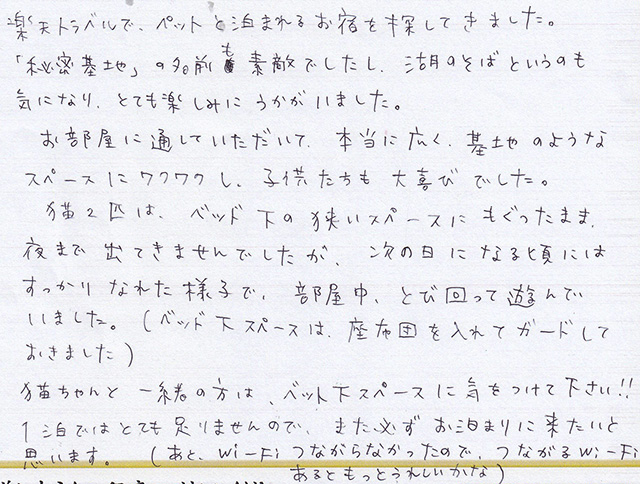 楽天トラベルで、ペットと泊まれるお宿を探してきました。
「秘密基地」の名前も素敵でしたし、湖のそばというのも
気になり、とても楽しみにうかがいました。
お部屋に通していただいて、本当に広く、基地のような
スペースにワクワクし、子供たちも大喜びでした。
猫2匹は、ベッド下の狭いスペースにもぐったまま、
夜まで出てきませんでしたが、次の日になる頃には
すっかりなれた様子で、部屋中、とび回って遊んで
いました。(ベッド下スペースは、座布団を入れてガードして
おきました)
猫ちゃんと一緒の方は、ベット下スペースに気をつけて下さい!!
1泊ではとても足りませんので、また必ずお泊まりに来たいと
思います。(あと、Wi-Fiつながらなかったので、つながるWi-Fi
あるともっとうれしいかな)